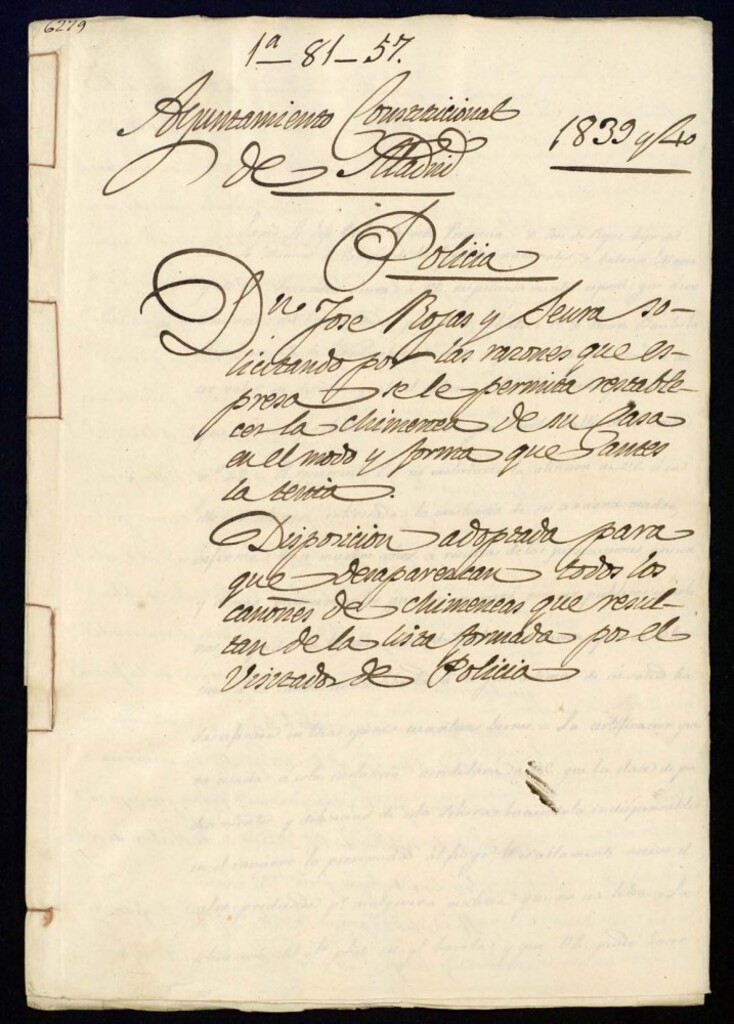 6279
1ª–81–57.
Ayuntamiento Constitucional
de Madrid
1839 y 40
Policia
Dn. Jose Rojas y Seura so-
licitando por las razones que es-
presa se le permita restable-
cer la chimenea de su Casa
en el modo y forma que antes
la tenia.
Disposicion adoptada para
que desaparezcan todos los
cañones de chimeneas que resul-
tan de la lista formada por el
Visitador de Policia